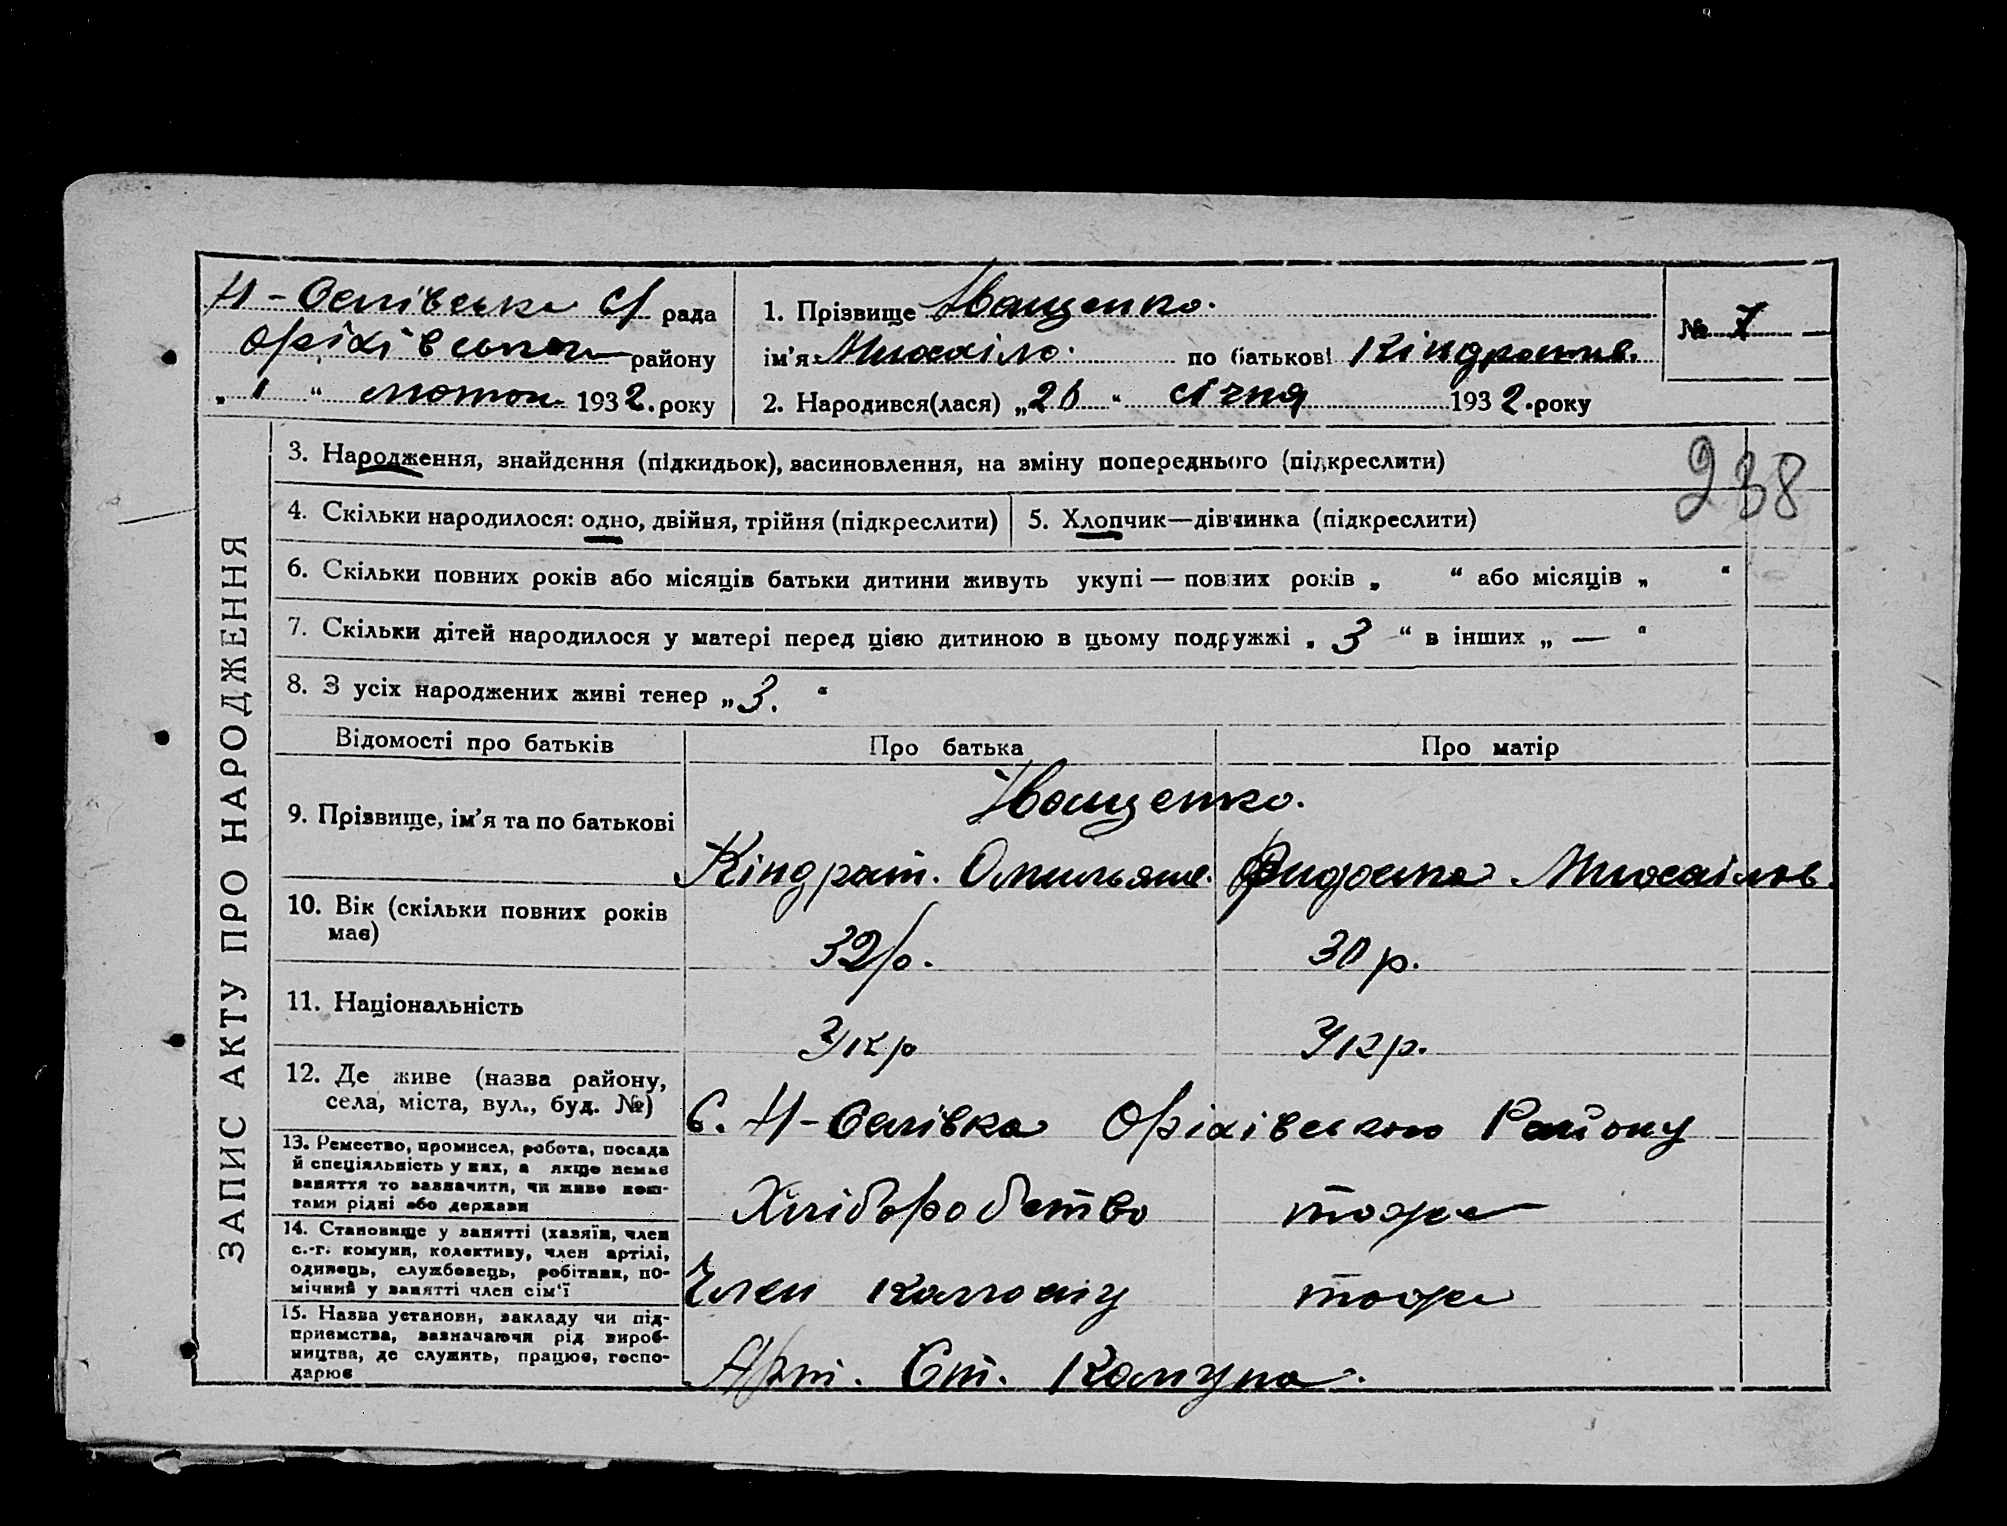 Н-Ослівська С/ рада
Оріхівського району
„ 1 “ лютого 1932. року
1. Прізвище Іващенко.
ім'я Михаіло. по батькові Кіндратов.
2. Народився(лася) „20“ січня 1932. року
№ 7
238
ЗАПИС АКТУ ПРО НАРОДЖЕННЯ
3. Народження, знайдення (підкидьок), васиновлення, на зміну попереднього (підкреслити)
4. Скільки народилося: одно, двійня, трійня (підкреслити)
5. Хлопчик—дівчинка (підкреслити)
6. Скільки повних років або місяців батьки дитини живуть укупі — повних років „ “ або місяців „ “
7. Скільки дітей народилося у матері перед цією дитиною в цьому подружжі „ 3 “ в інших „ — “
8. З усіх народжених живі тепер „3. “
Відомості про батьків Про батька Про матір
9. Прізвище, ім'я та по батькові
Іващенко.
Кіндрат. Омильяно. Михаілов.
10. Вік (скільки повних років
має)
32 р. 30 р.
11. Національність
Укр Укр.
12. Де живе (назва району,
села, міста, вул., буд. №)
С. Н-Ослівка Оріхівського Району
13. Ремество, промисел, робота, посада
й спеціяльність у них, а якщо немає
заняття то зазначити, чи живе кош-
тами рідні або держави
Хліборобство тоже
14. Становище у занятті (хазяїн, член
с.-г. комуни, колективу, член артілі,
одинець, службовець, робітник, по-
мічний у занятті член сім'ї
Член колгоспу тоже
15. Назва установи, закладу чи під-
приємства, зазначаючи рід вироб-
ництва, де служить, працює, госпо-
дарює
Арт. Ст. Комуна.